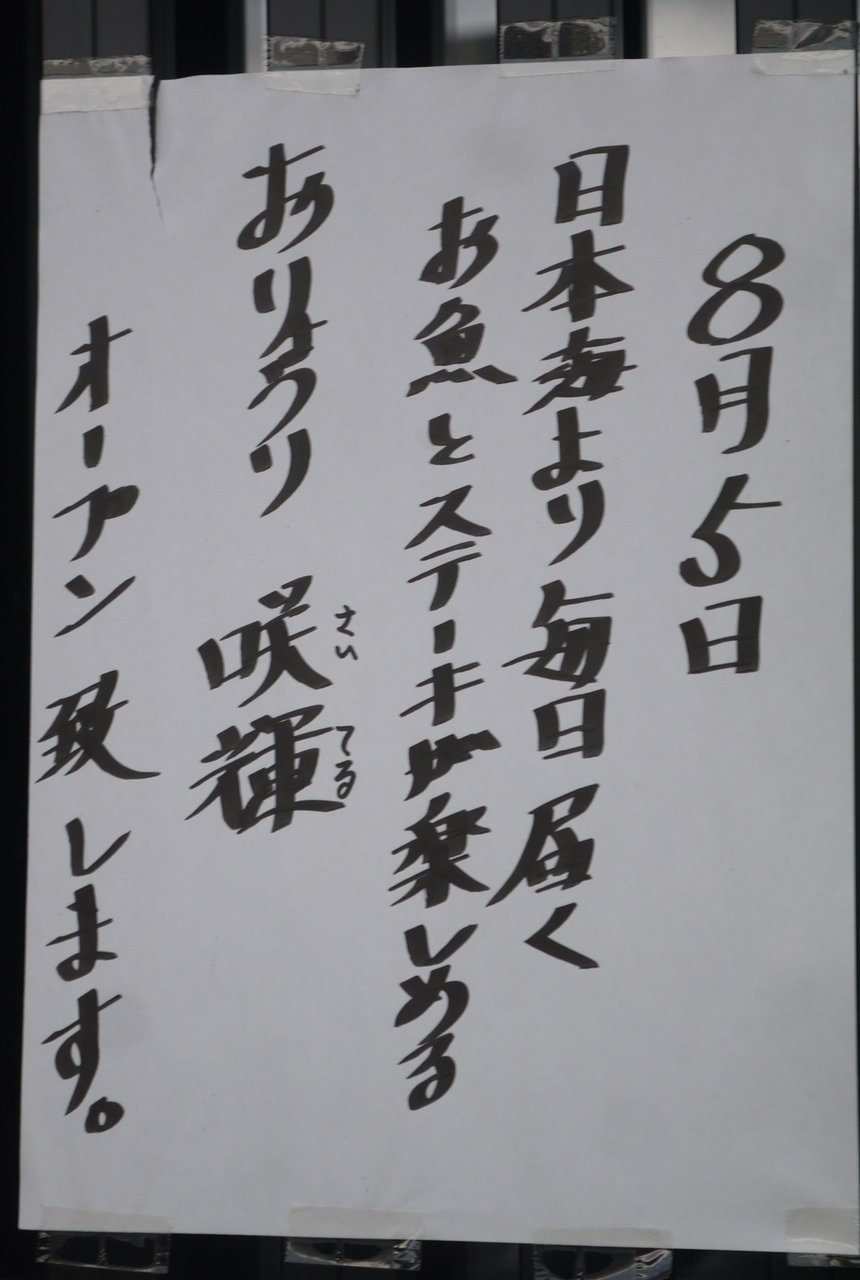 8月5日
日本海より毎日届く
お魚とステーキが楽しめる
おりょうり 咲輝
さい てる
オープン致します。